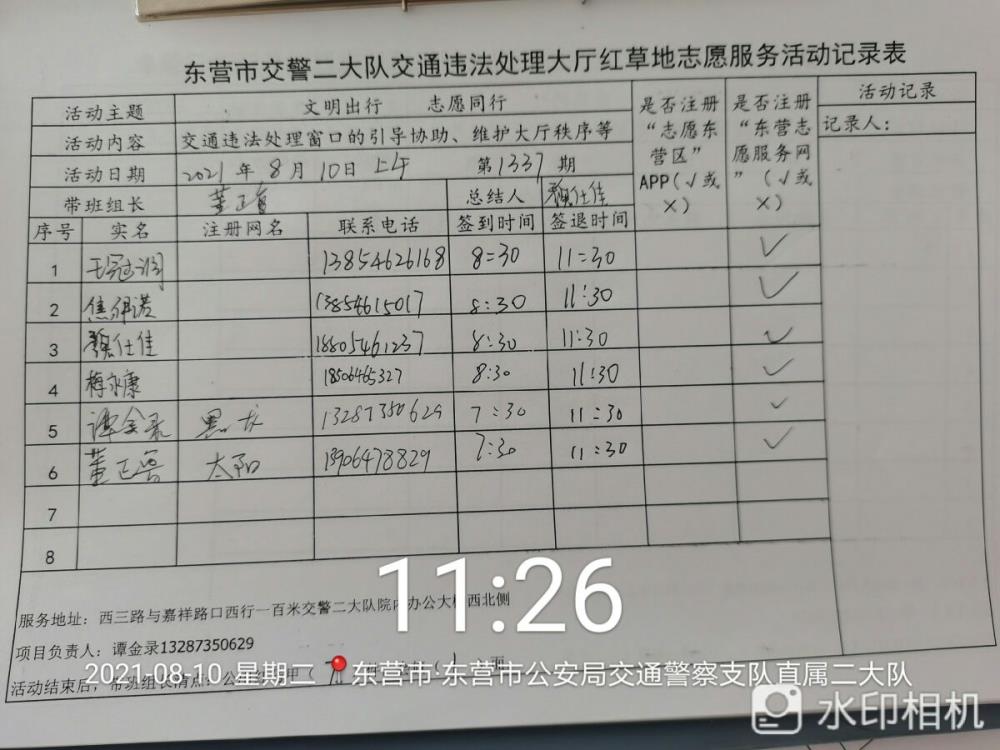 东营市交警二大队交通违法处理大厅红草地志愿服务活动记录表
活动主题 文明出行 志愿同行 是否注册“志愿东营区”APP(√或×) 是否注册“东营志愿服务网”(√或×) 活动记录
活动内容 交通违法处理窗口的引导协助、维护大厅秩序等 记录人:
活动日期 2021年8月10日上午 第1337期
带班组长 董正鲁 总结人 魏仕佳
序号 实名 注册网名 联系电话 签到时间 签退时间
1 王冠润 13854626168 8:30 11:30 √
2 焦维诺 13854615017 8:30 11:30 √
3 魏仕佳 18805461237 8:30 11:30 √
4 梅永康 18506465327 8:30 11:30 √
5 谭金录 黑龙 13287350629 7:30 11:30 √
6 董正鲁 太阳 13906478829 7:30 11:30 √
7
8
11:26
服务地址:西三路与嘉祥路口西行一百米交警二大队院内办公大楼西北侧
项目负责人:谭金录13287350629
2021.08.10 星期二 东营市·东营市公安局交通警察支队直属二大队
活动结束后,带班组长清点:
水印相机